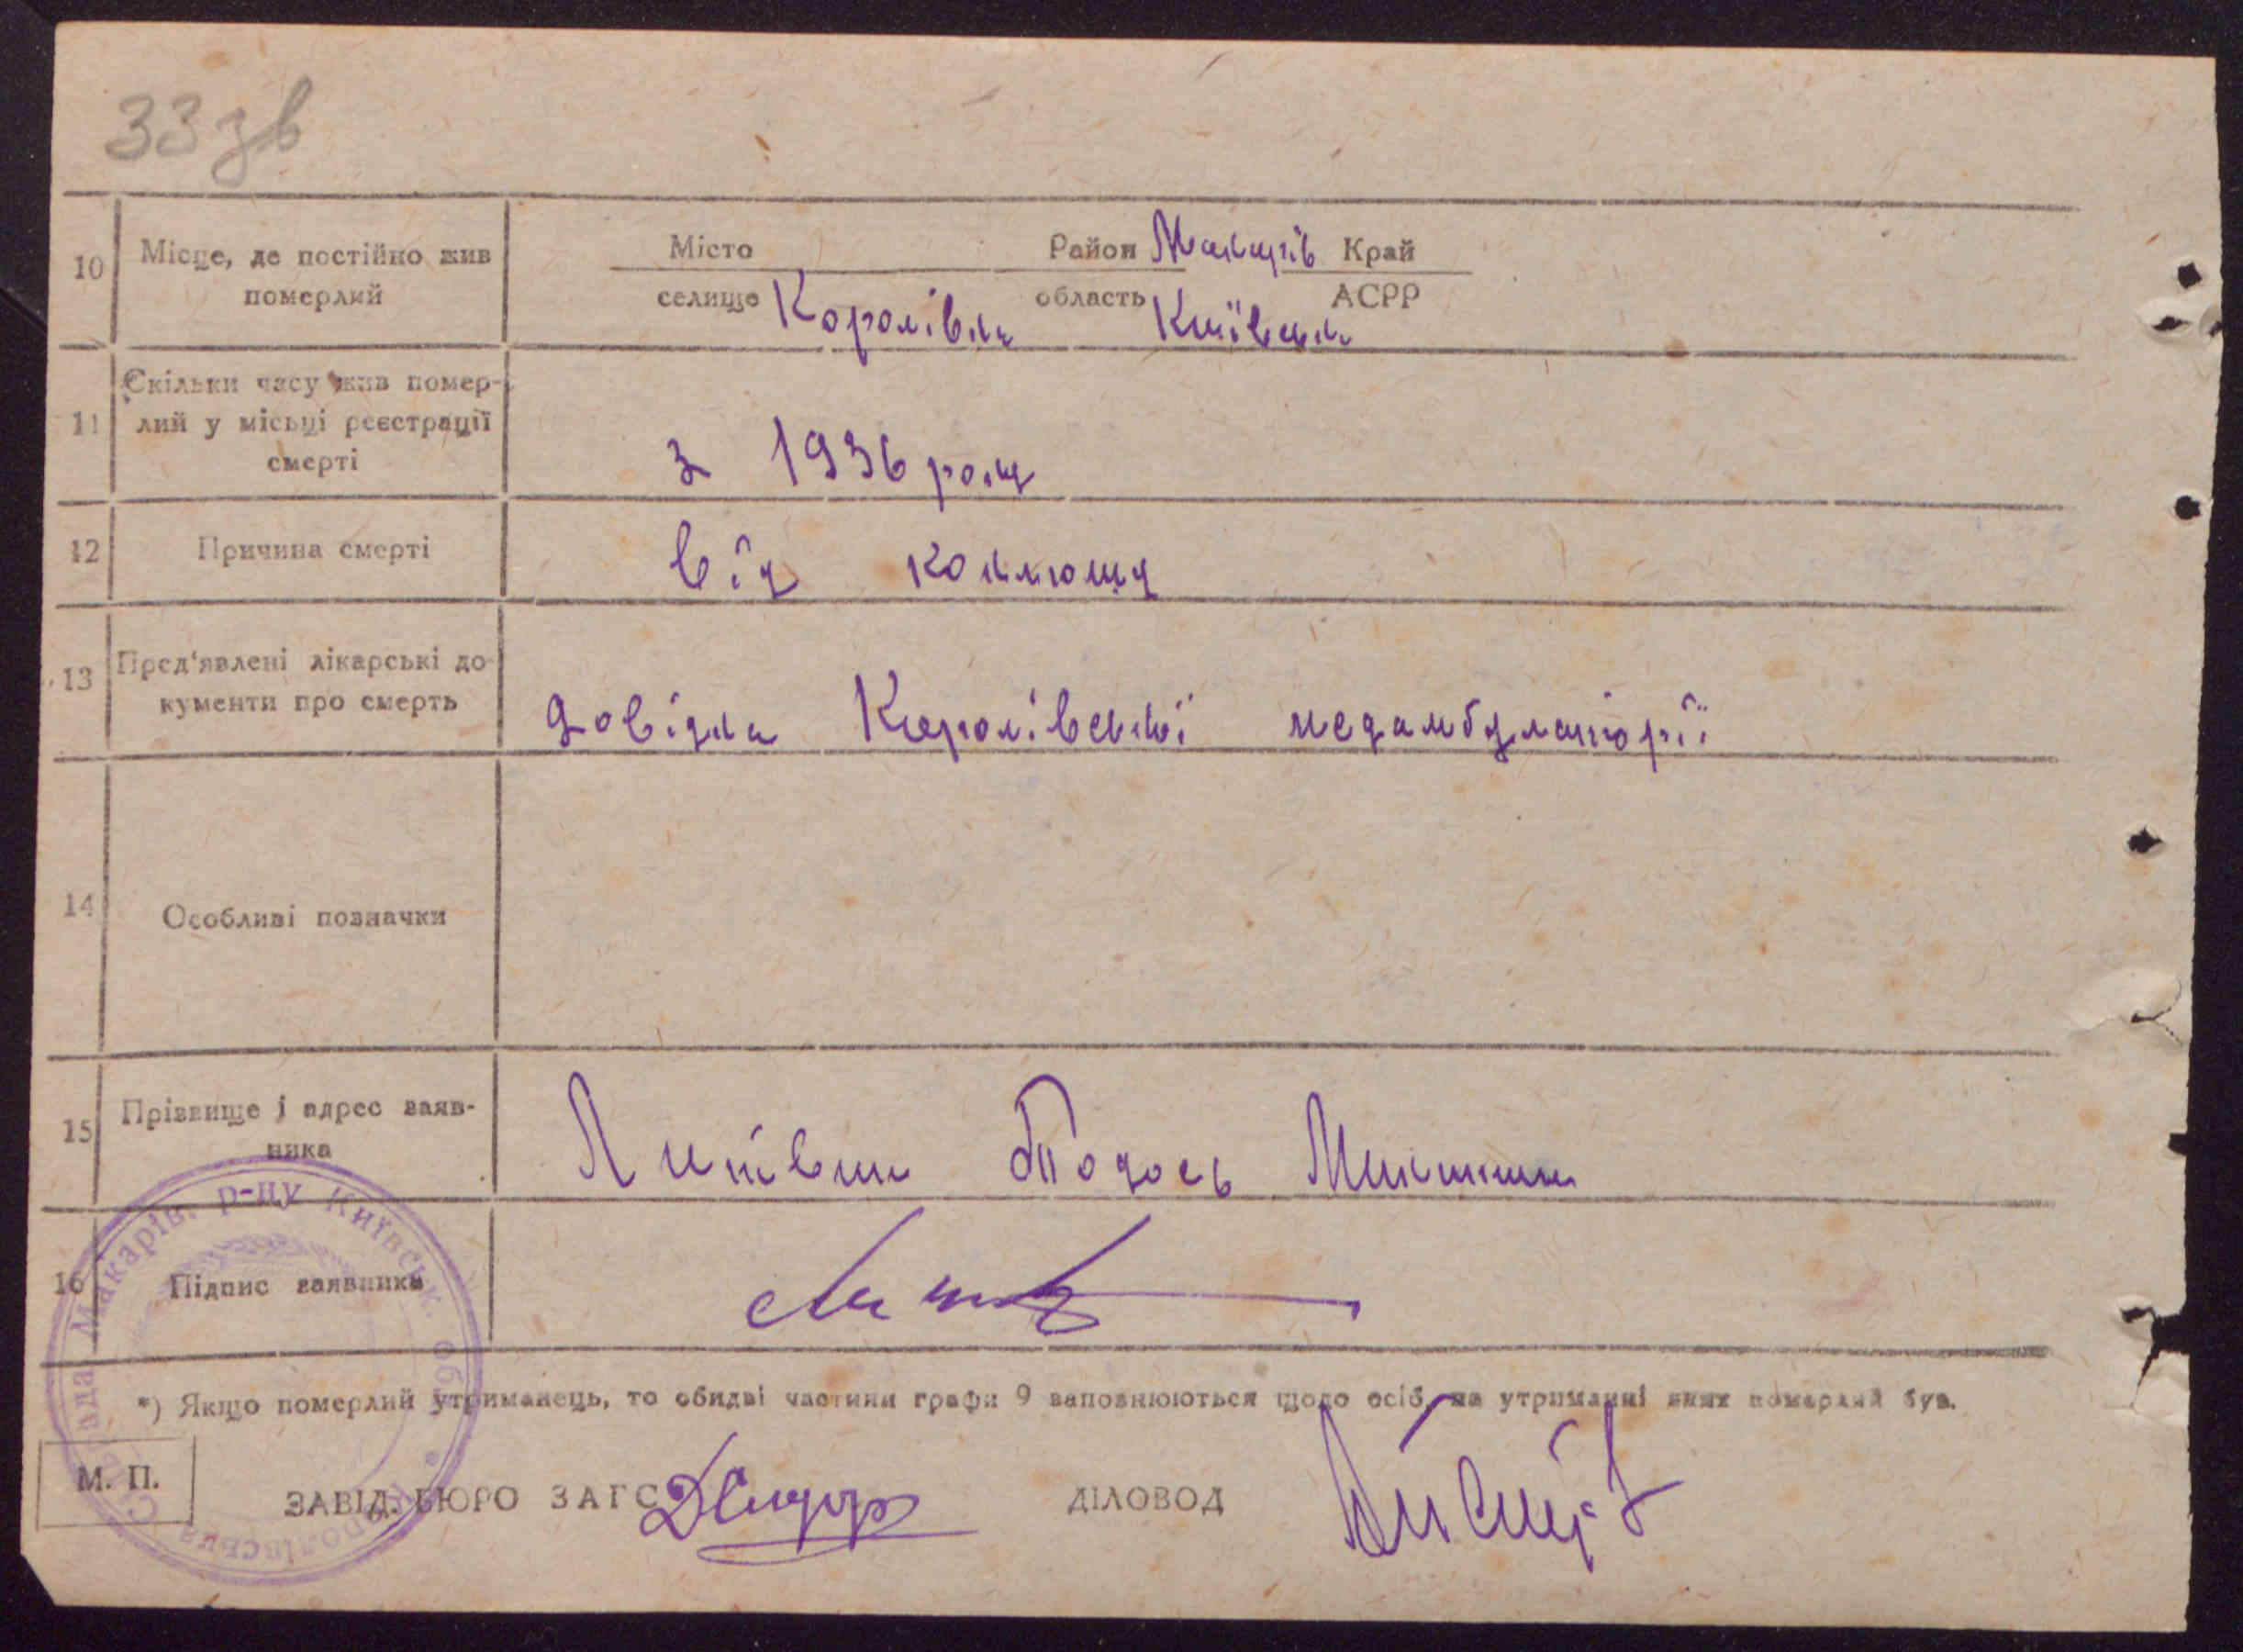 33 зв
10 Місце, де постійно жив померлий
Місто Район Макарів Край
селище Королівка область Київська АСРР
11 Скільки часу жив помер-
лий у місьці реєстрації
смерті
з 1936 року
12 Причина смерті від коклюшу
13 Пред'явлені лікарські до-
кументи про смерть
довідка Королівської медамбулаторії
14 Особливі позначки
15 Прізвище і адрес заяв-
ника
Литвин Тодось
16 Підпис заявника
*) Якщо померлий утриманець, то обидві частини графи 9 заповнюються щодо осіб, на утриманні яких померлий був.
М. П.
ЗАВІД. БЮРО ЗАГС ДІЛОВОД
Королівська Сільрада Макарів. р-ну Київськ. обл.